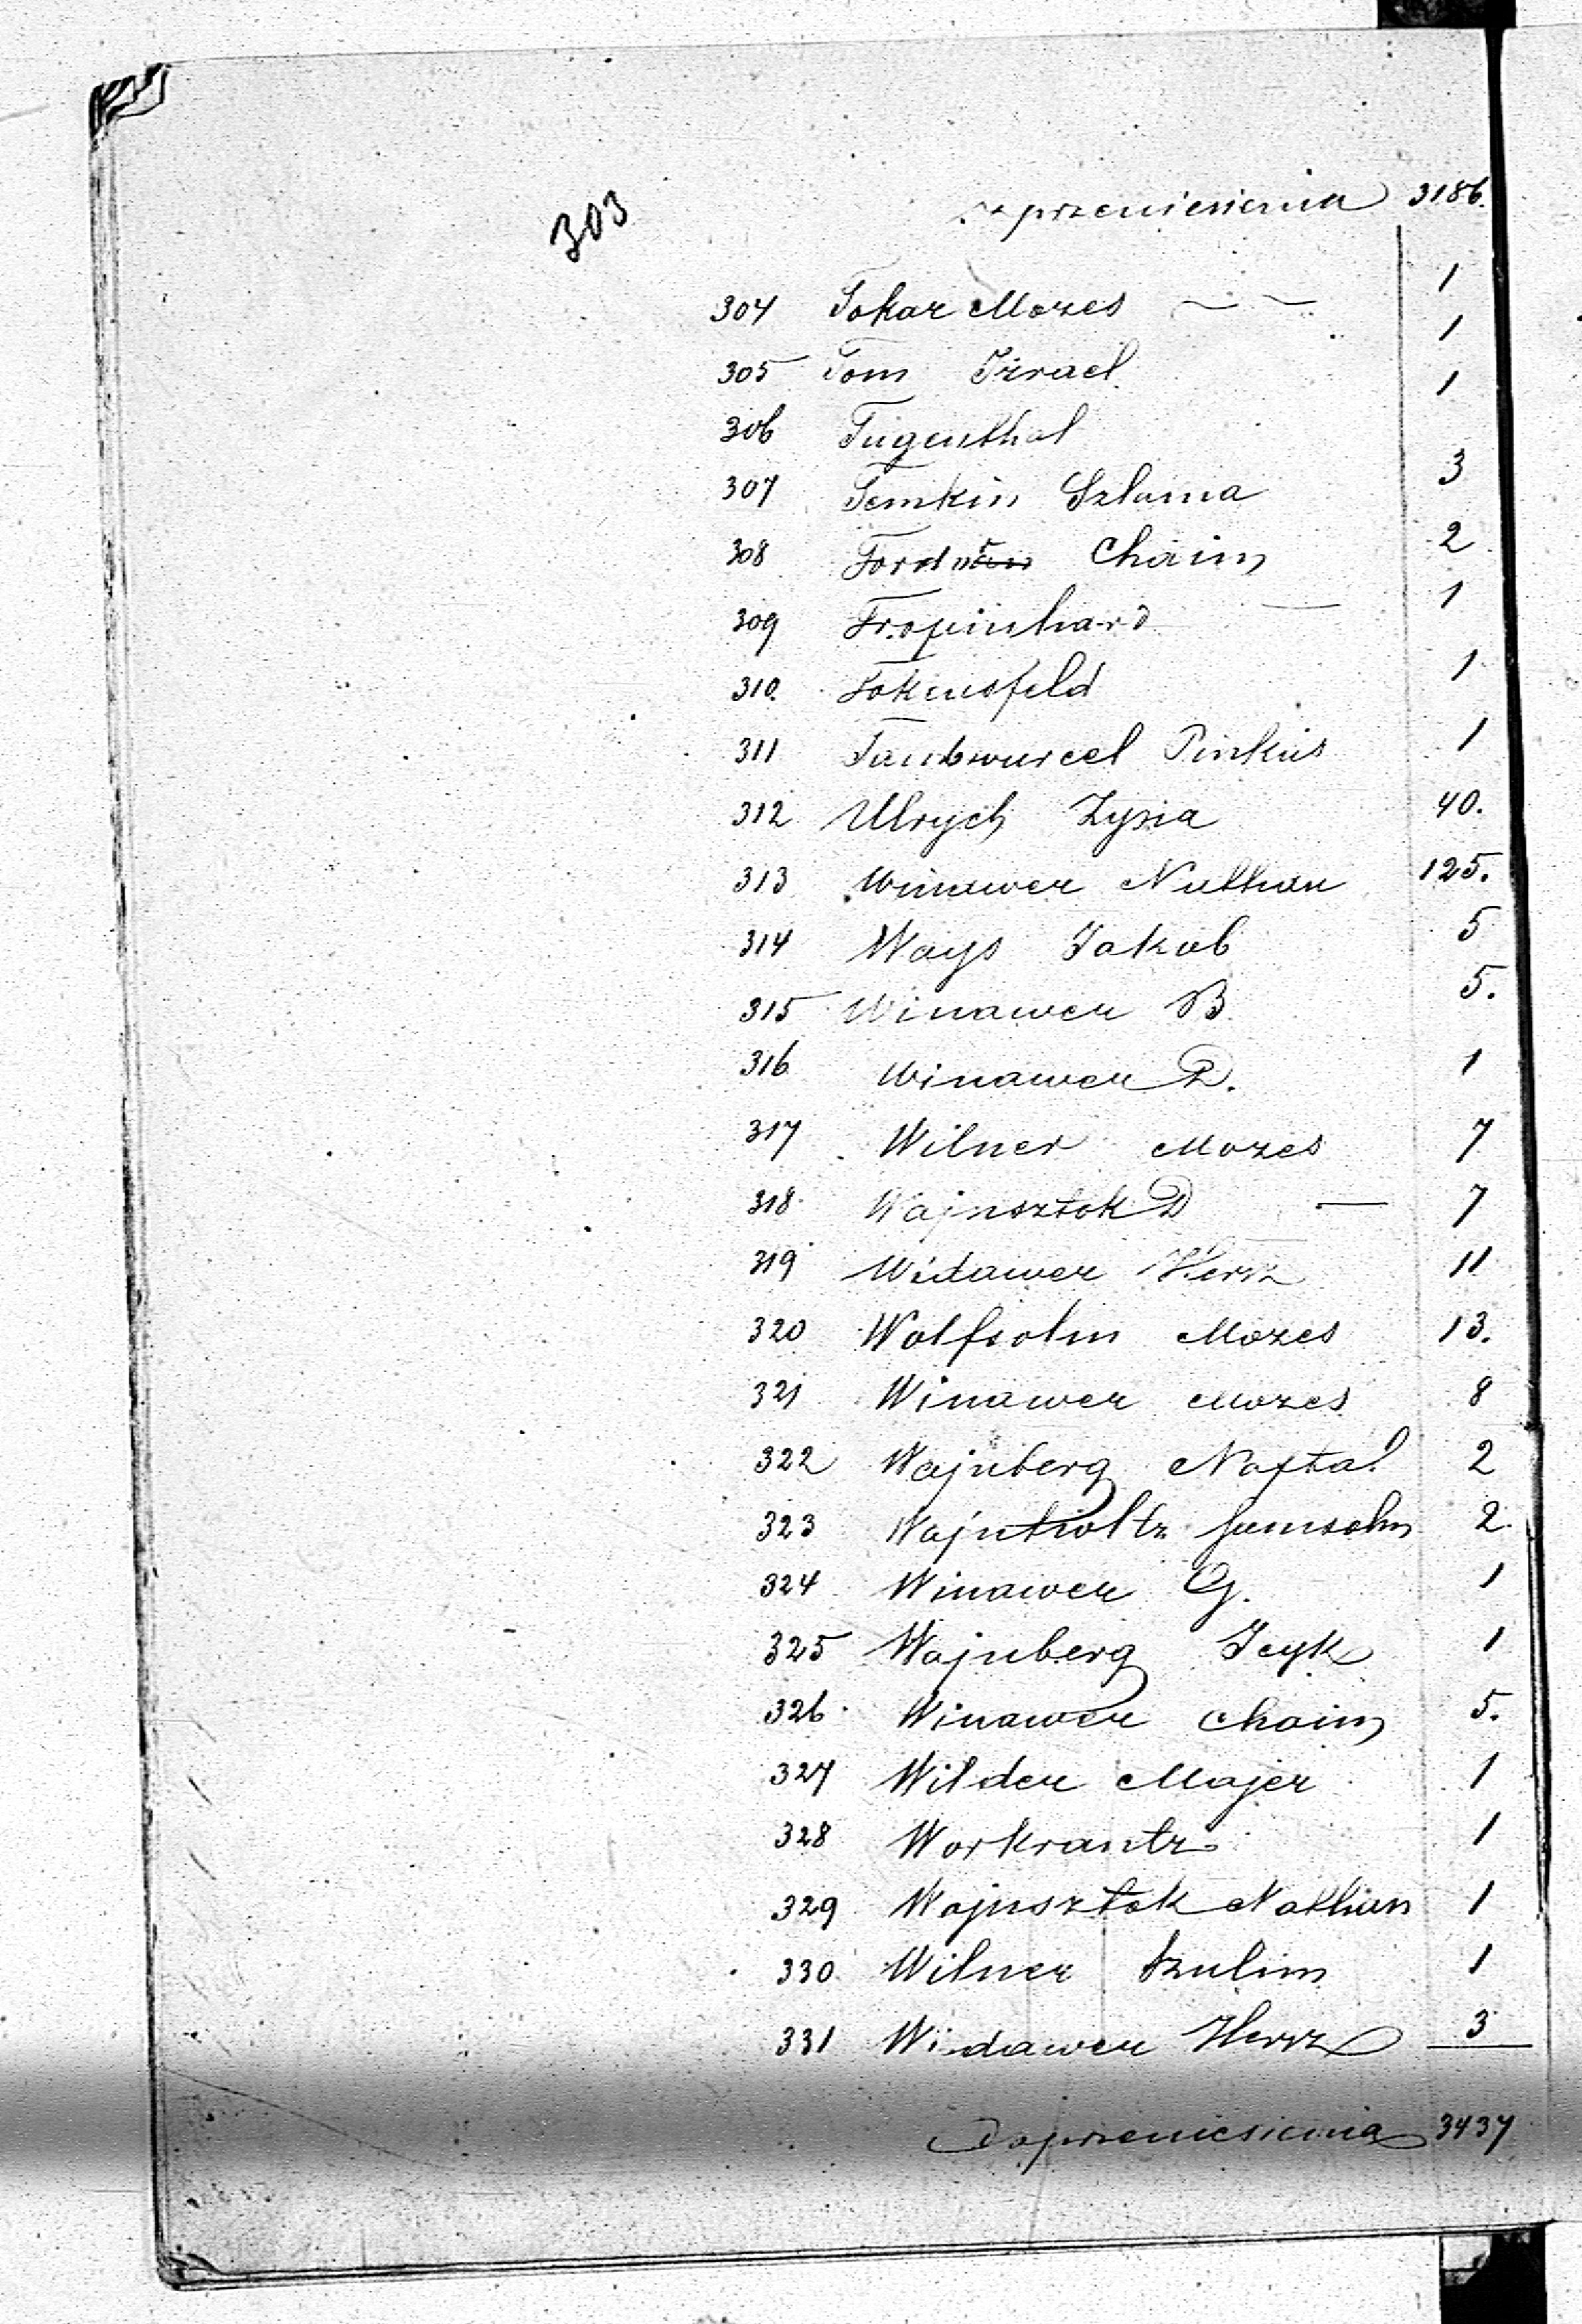 303
z przeniesienia 3186.
304 Tokar Mozes — — 1
305 Tom Izrael 1
306 Tugenthal 1
307 Temkin Szlama 3
308 Chaim 2
309 — 1
310. Tokensfeld 1
311 Taubwurcel Pinkus 1
312 Ulrych Zysia 40.
313 Winawer Nathan 125.
314 Ways Jakob 5
315 Winawer B 5.
316 Winawer 1
317 Wilner Mozes 7
318 Wajnsztok D — 7
319 Widawer Hersz 11
320 Wolfsohn Mozes 13.
321 Winawer Mozes 8
322 Wajnberg Naftal 2
323 Wajnholtz Samsohn 2.
324 Winawer G. 1
325 Wajnberg Icyk 1
326 Winawer Chaim 5.
327 Wilder Majer 1
328 Workrantz 1
329 Wajnsztok Nathan 1
330 Wilner Szulim 1
331 Widawer Hersz 3
Do przeniesienia 3437